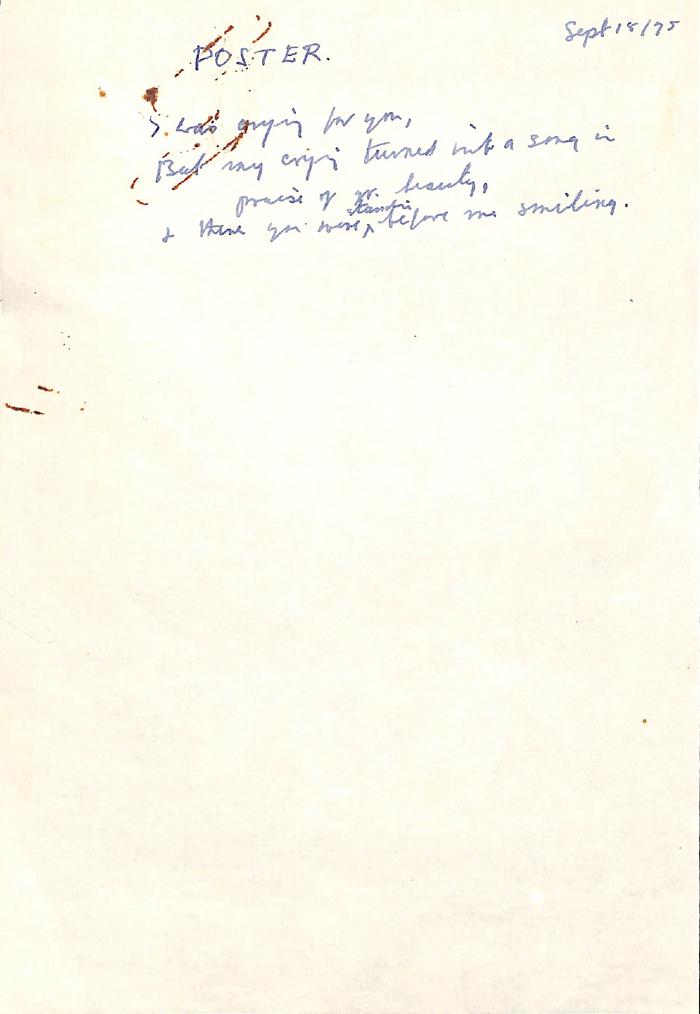 Sept 18/75
POSTER.
I was crying for you,
But my crying turned into a song in
praise of yr. beauty,
& there you were, standing before me smiling.